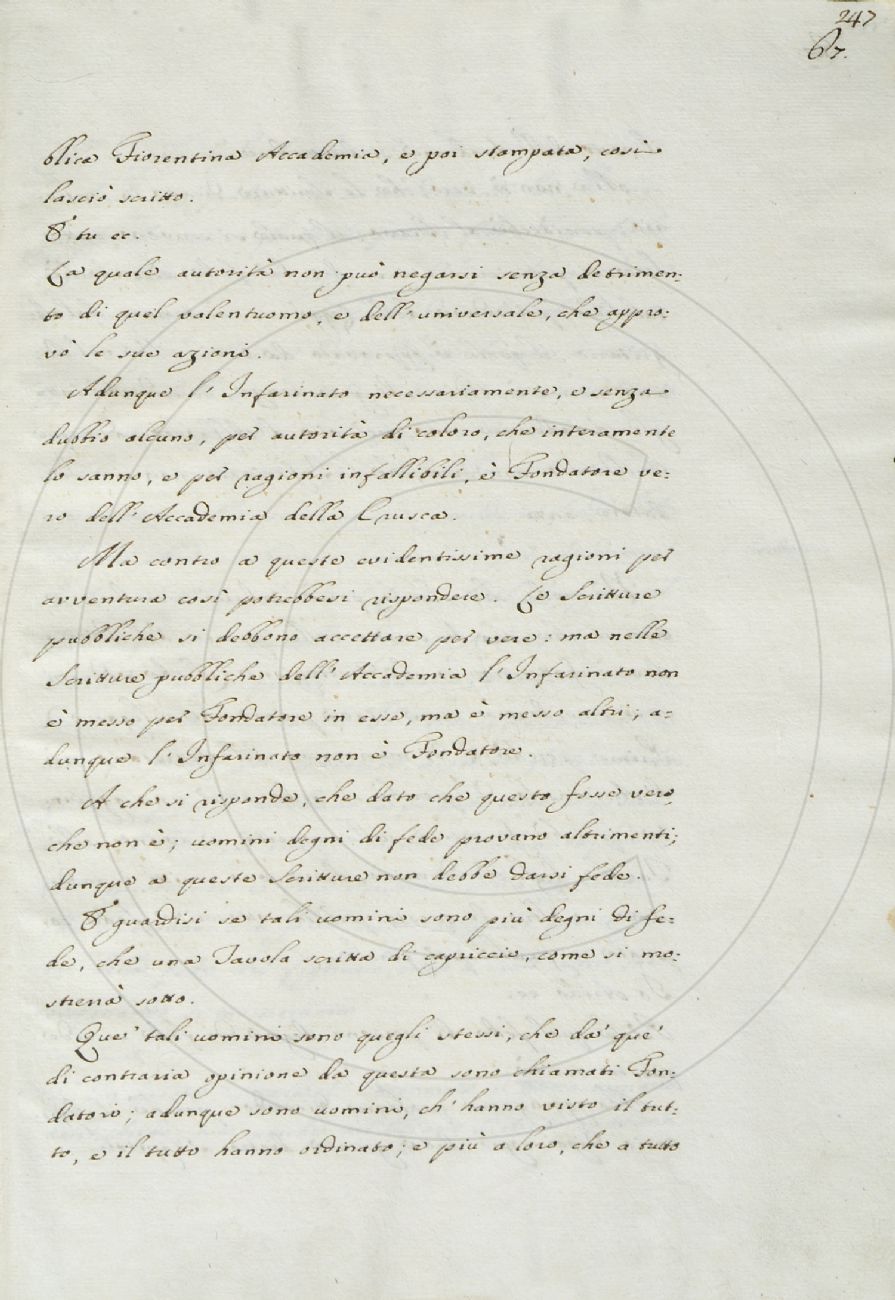 247
67.
blica Fiorentina Accademia, e poi stampata, così
lasciò scritto.
E tu ec.
La quale autorità non può negarsi senza detrimen:
to di quel valentuomo, e dell'universale, che appro:
vò le sue azioni.
Adunque l'Infarinato necessariamente, e senza
dubbio alcuno, per autorità di coloro, che interamente
lo sanno, e per ragioni infallibili, è Fondatore ve:
ro dell'Accademia della Crusca.
Ma contro a queste evidentissime ragioni per
avventura così potrebbesi rispondere. Le Scritture
pubbliche si debbono accettare per vere: ma nelle
Scritture pubbliche dell'Accademia l'Infarinato non
è messo per Fondatore in esse, ma è messo altri; a=
dunque l'Infarinato non è Fondatore.
A che si risponde, che dato che questo fosse vero,
che non è; uomini degni di fede provano altrimenti;
dunque a queste Scritture non debbe darsi fede.
E guardisi se tali uomini sono più degni di fe:
de, che una Tavola scritta di capriccio, come si mo:
strerrà sotto.
Que' tali uomini sono quegli stessi, che da' que'
di contraria opinione da questa sono chiamati Fon:
datori; adunque sono uomini, ch'hanno visto il tut:
to, e il tutto hanno ordinato; e più a loro, che a tutto